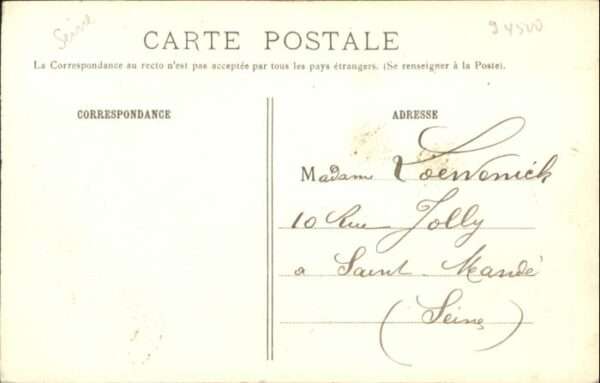 Seine
94500
CARTE POSTALE
La Correspondance au recto n'est pas acceptée par tous les pays étrangers. (Se renseigner à la Poste).
CORRESPONDANCE
ADRESSE
Madam Loewenick
10 Rue Jolly
a Saint-Mandé
(Seine)